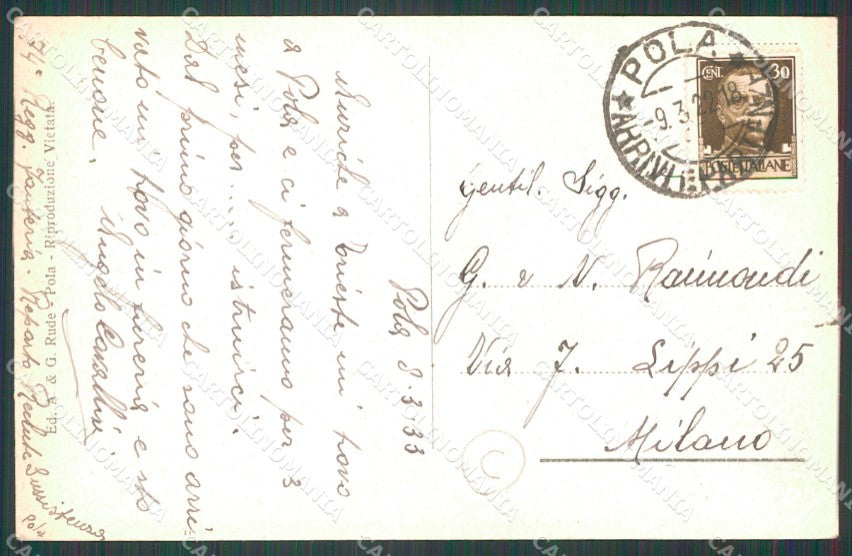 Pola 8.3.33
Anziché a Trieste mi trovo
a Pola e ci fermeremo per 3
mesi, per.... istruirci.
Dal primo giorno che sono arri-
vato mi trovo in fureria e sto
benone.
Angelo
74° Regg. Fanteria - Reparto Reclute Sussistenza
Pola
Ed. A. & G. Rude - Pola - Riproduzione Vietata.
POLA
9.3.
ARRIVI E PARTENZE
CENT. 30
POSTE ITALIANE
Gentil. Sigg.
G. e N. Raimondi
Via F. Lippi 25
Milano
CARTOLINOMANIA